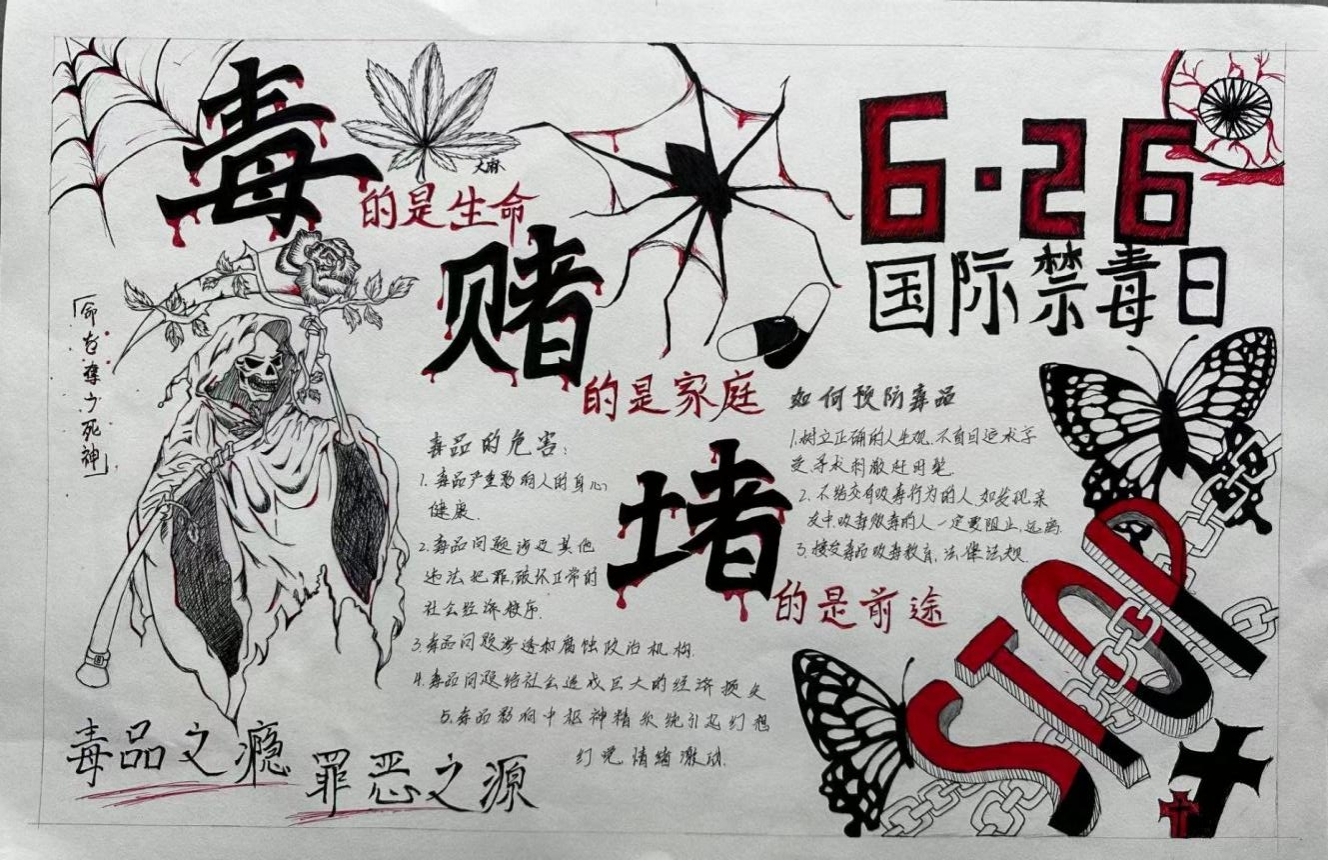 毒
大麻
的是生命
赌
的是家庭
堵
的是前途
6·26
国际禁毒日
死神」
毒品的危害:
1.毒品严重影响人的身心
健康.
2.毒品问题涉及其他
违法犯罪,破坏正常的
社会经济秩序.
3.毒品问题渗透和腐蚀政治机构.
4.毒品问题给社会造成巨大的经济损失
5.毒品影响中枢神精系统引起幻想
幻觉 情绪激动.
如何预防毒品
1.树立正确的人生观.不盲目追求享
受寻求刺激赶时髦.
2.不结交有吸毒行为的人.如发现亲
友中吸毒贩毒的人一定要阻止,远离.
3.接受毒品吸毒教育,法律法规.
STOP
毒品之瘾
罪恶之源